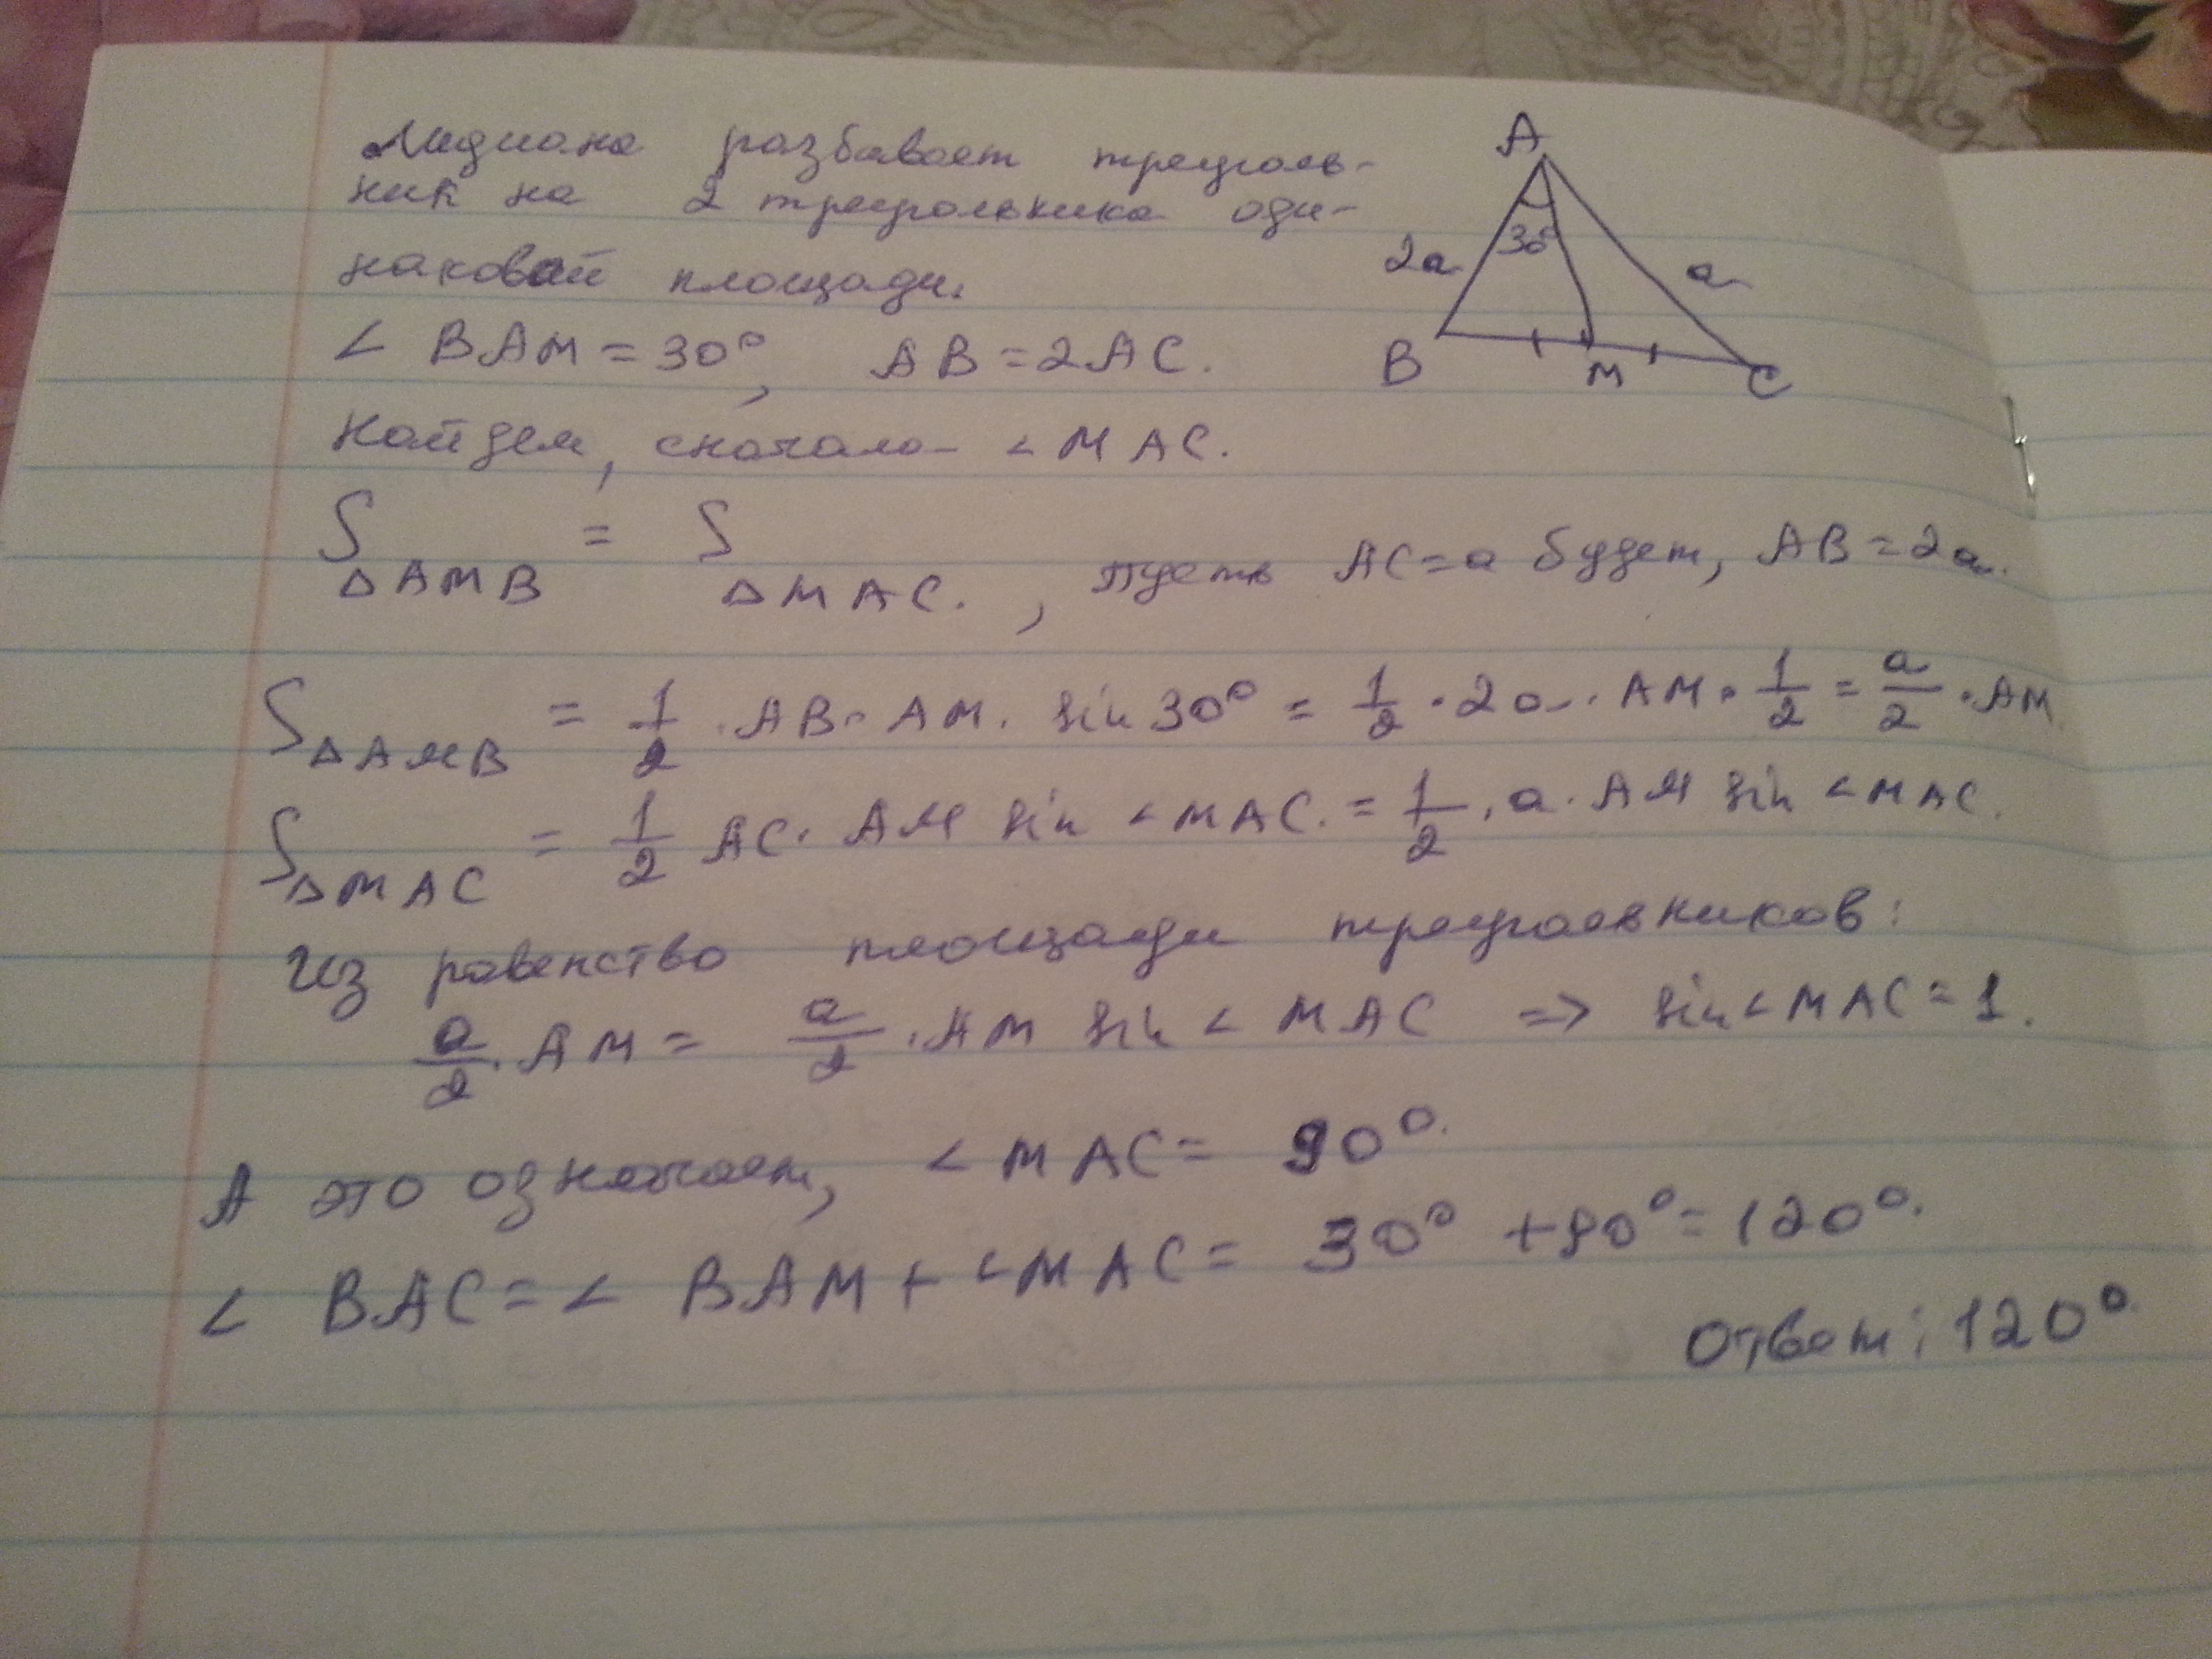 Медиана разбивает треуголь-
ник на 2 треугольника оди-
наковой площади.
∠ BAM = 30°, AB = 2AC.
Найдем, сначала ∠MAC.
S△AMB = S△MAC. , пусть AC = a будет, AB = 2a.
S△AMB = 1/2 · AB · AM · sin 30° = 1/2 · 2a · AM · 1/2 = a/2 · AM
S△MAC = 1/2 AC · AM sin ∠MAC. = 1/2 · a · AM sin ∠MAC.
Из равенство площади треугольников:
a/2 · AM = a/2 · AM sin ∠ MAC => sin∠MAC = 1.
А это означает, ∠MAC = 90°.
∠ BAC = ∠ BAM + ∠MAC = 30° + 90° = 120°.
Ответ: 120°.
A
30°
2a
a
B
M
C